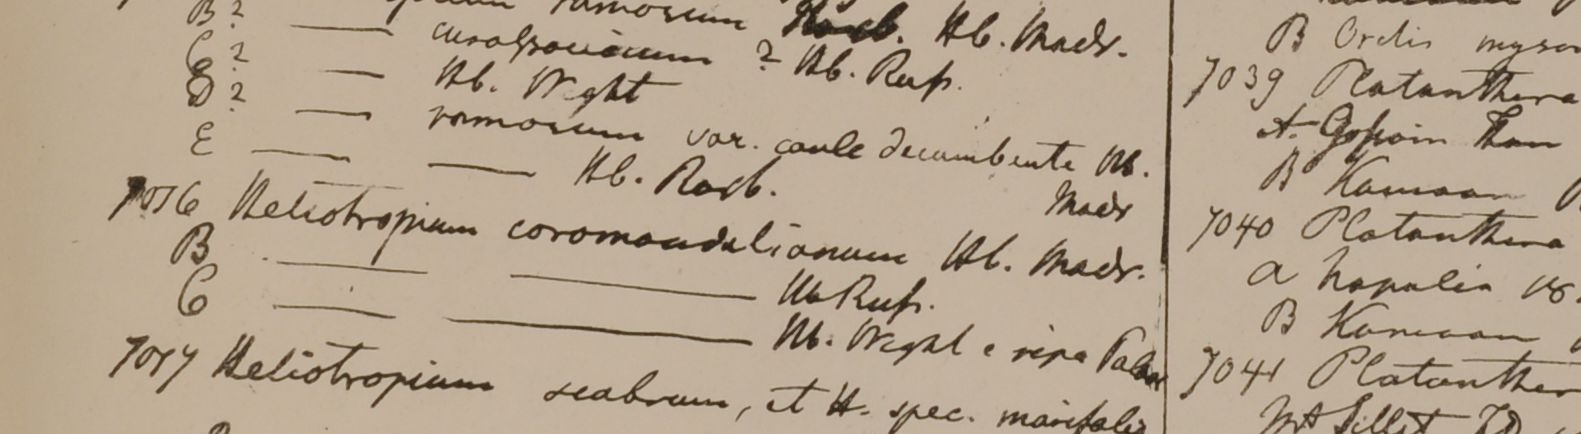 B? ramosum Roxb. Hb. Madr.
C? —— curassavicum ? Hb. Rusp.
D? —— Hb. Wight
—— ramosum var. caule decumbente Hb. Madr
E —— —— Hb. Roxb.
7016 Heliotropium coromandelianum Hb. Madr.
B —— —— Hb Rusp.
C —— —— Hb. Wight e ripa
7017 Heliotropium scabrum, et H. spec.
B Ordis
7039 Platanthera
A
B Kamaon
7040 Platanthera
a Napalia 18
B Kamaon
7041 Platanther